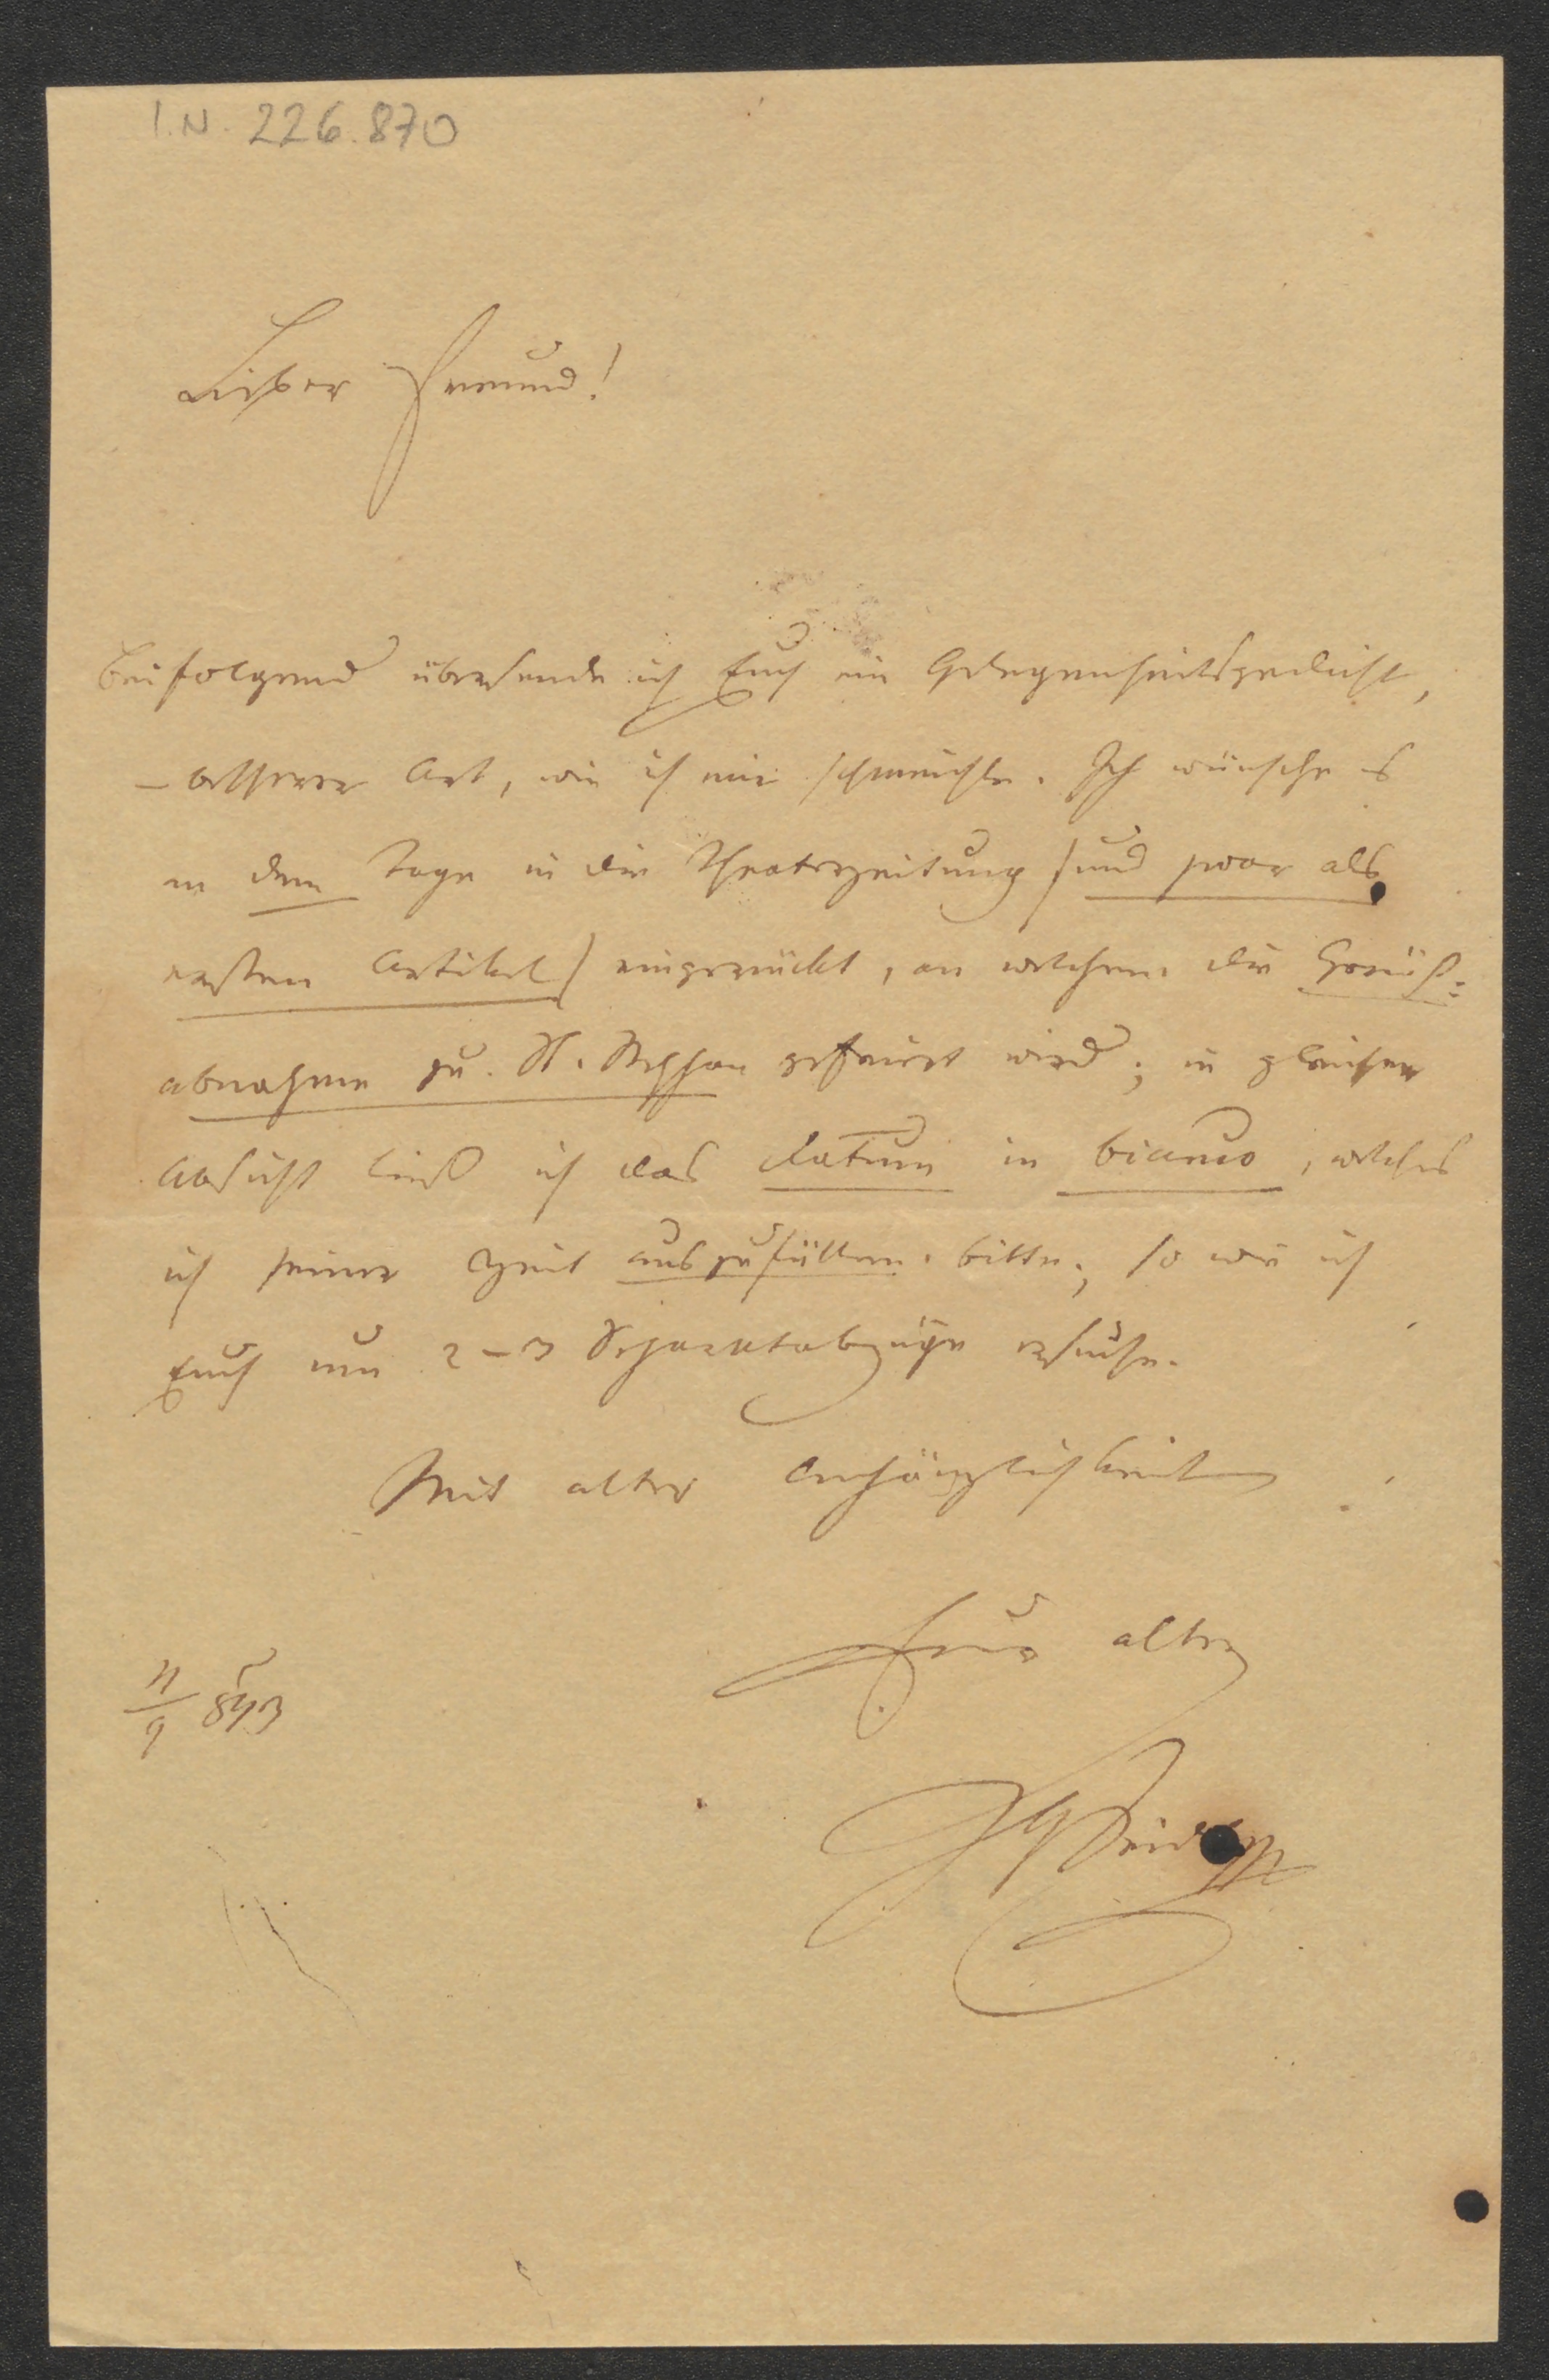 I.N. 226.870
Lieber Freund!
Beifolgend übersende ich Euch ein Gelegenheitsgedicht,
– besserer Art, wie ich mir schmeichle. Ich wünsche es
an dem Tage in die Theaterzeitung (und zwar als
ersten Artikel) eingerückt, an welchem die Gerüst=
abnahme zu St. Stephan gefeiert wird; in gleicher
Absicht ließ ich das Datum in bianco, welches
ich seiner Zeit auszufüllen bitte; so wie ich
Euch um 2–3 Separatabzüge ersuche.
Mit alter Anhänglichkeit
Euer alter
11/9 843
JGSeidl